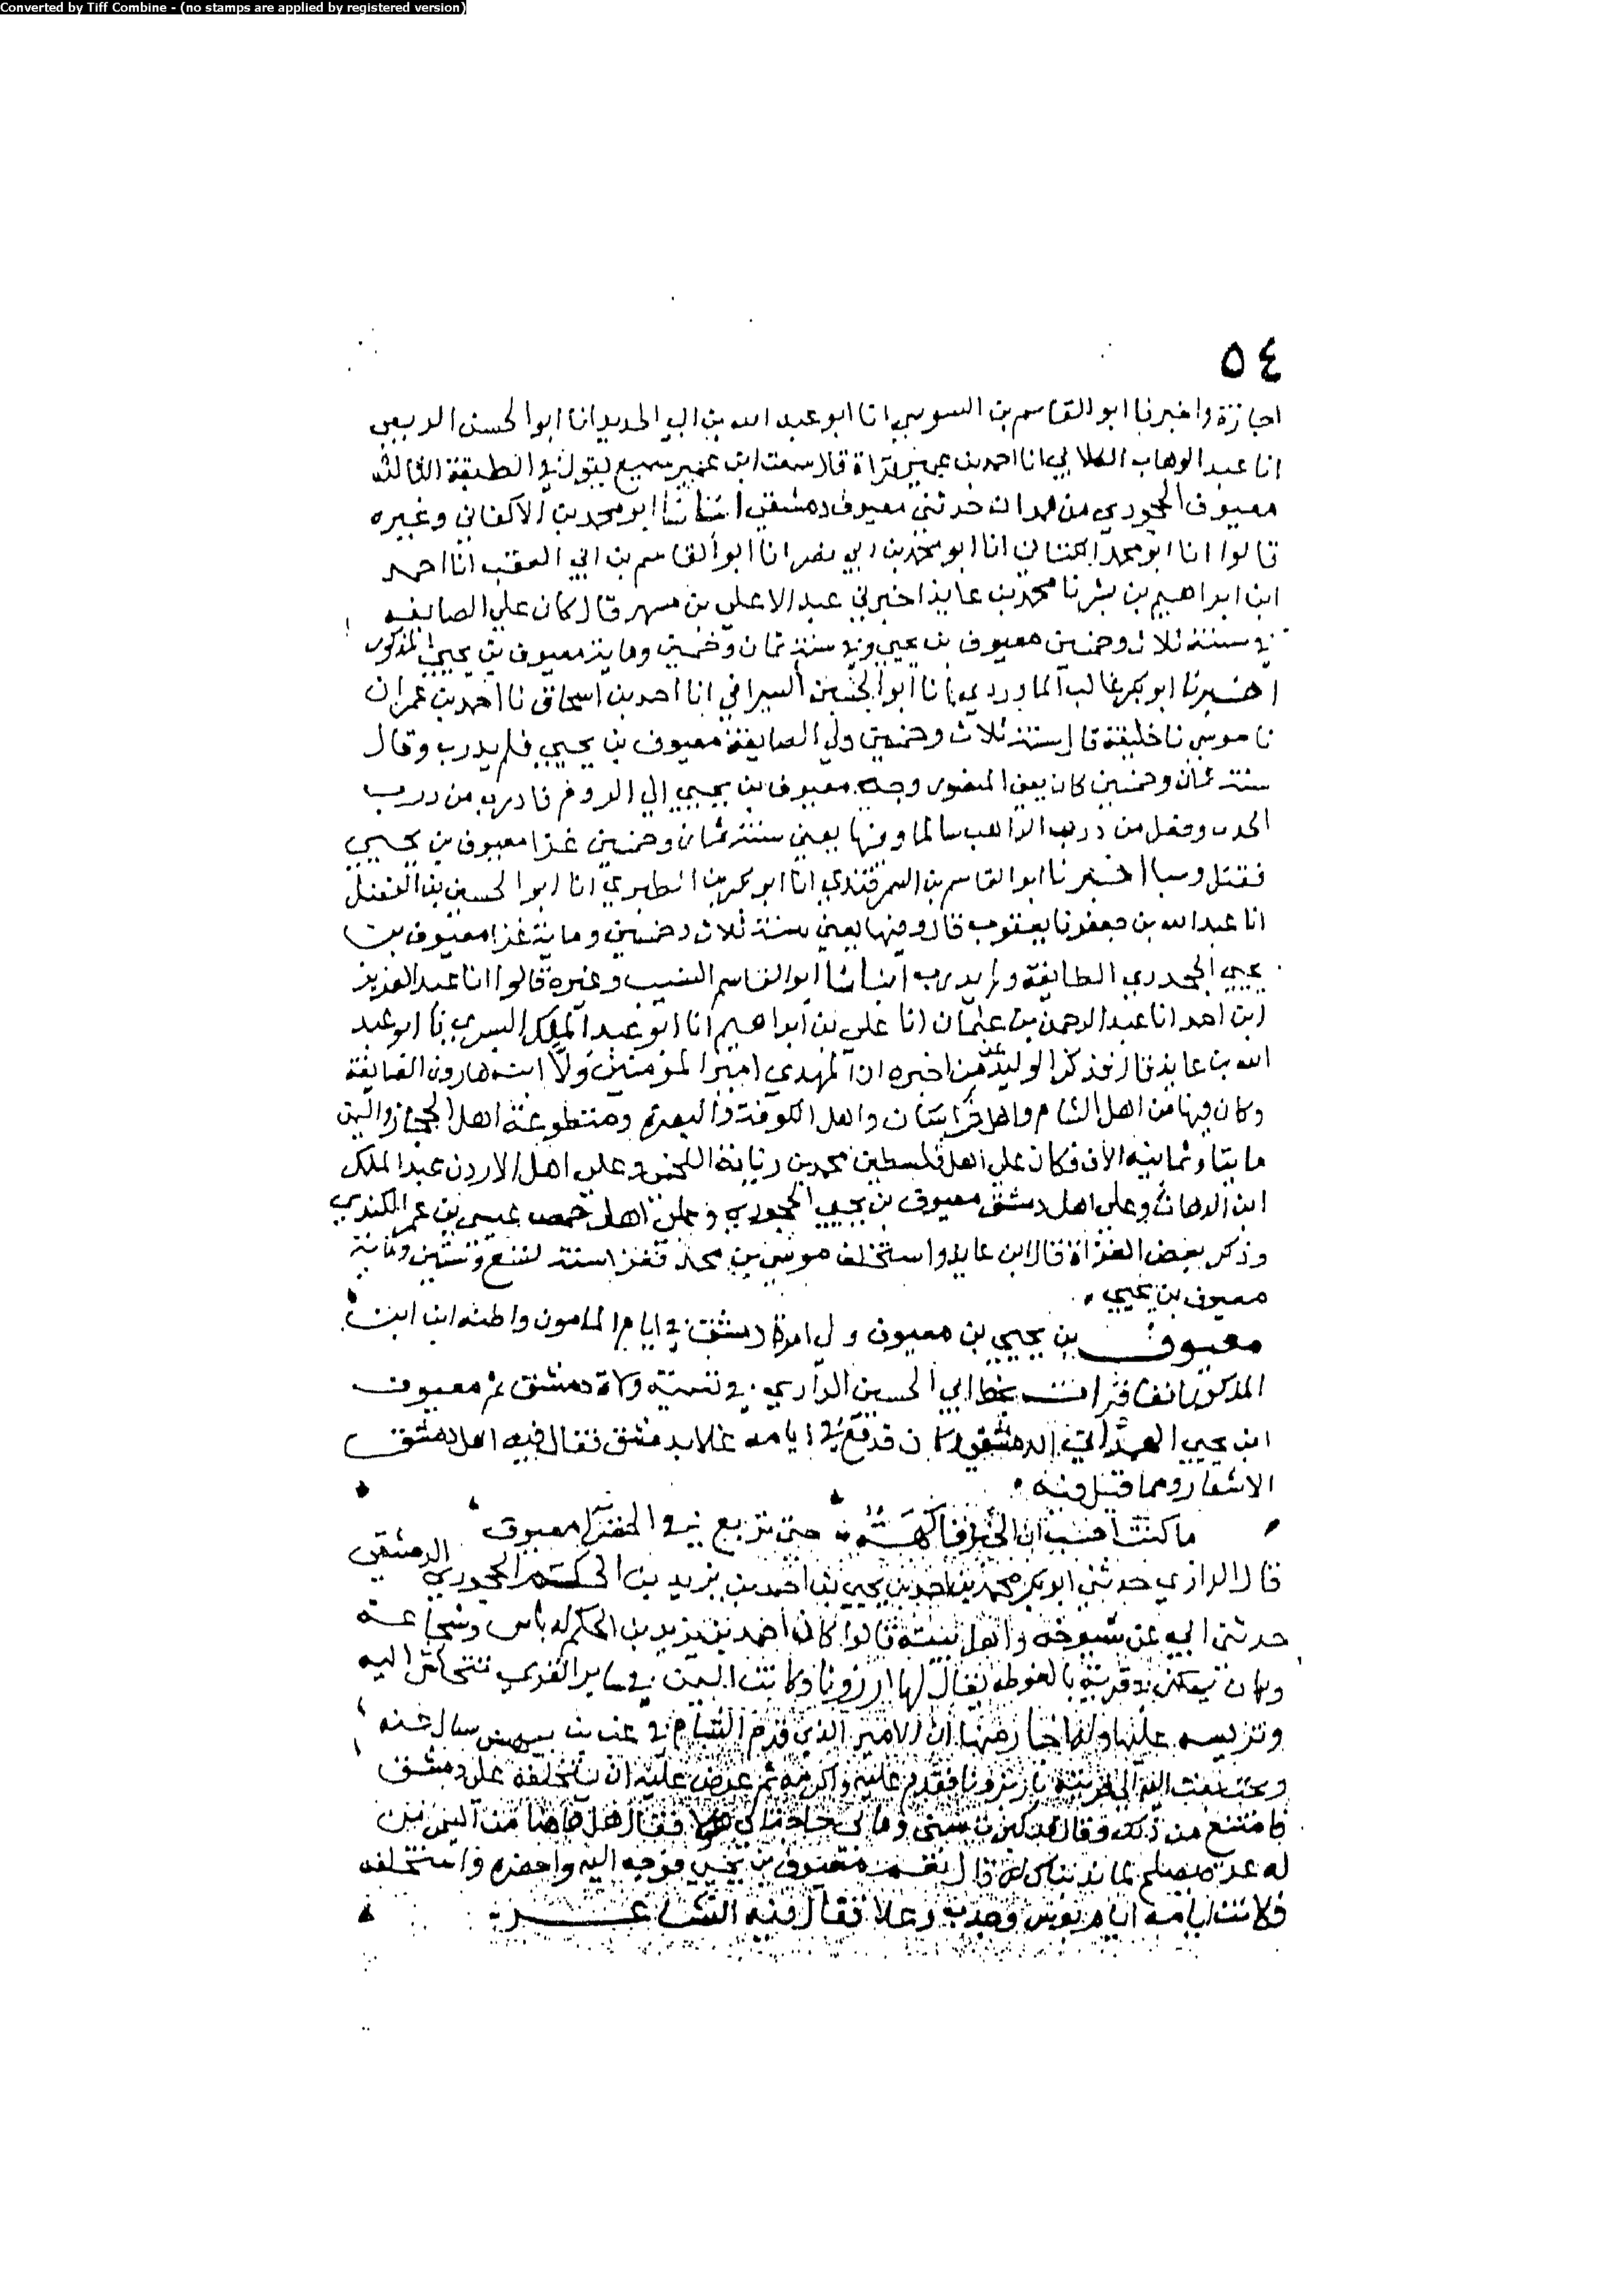 Converted by Tiff Combine - (no stamps are applied by registered version)
٥٤
اجازة واخبرنا ابو القاسم بن السوسي انا ابو عبد الله بن ابي الحديد انا ابو الحسن الربعي
انا عبد الوهاب الكلابي انا احمد بن عمير قراة قال سمعت ابن سميع يقول في الطبقة الثالثة
معيوف الحجوري من همدان حدثني معيوف دمشقي انبانا ابو محمد بن الاكفاني وغيره
قالوا انا ابو محمد الكتاني انا ابو محمد بن ابي نصر انا ابو القاسم بن ابي العقب انا احمد
ابن ابراهيم بن بشر نا محمد بن عايذ اخبرني عبد الاعلي بن مسهر قال كان علي الصايفه
في سنة ثلاث وخمسين معيوف بن يحيي وفي سنة ثمان وخمسين وماية معيوف بن يحيي المذكور
اخبرنا ابو بكر غالب الماوردي انا ابو الحسين السيرافي انا احمد بن اسحاق نا احمد بن عمران
نا موسي نا خليفة قال سنة ثلاث وخمسين ولي الصايفة معيوف بن يحيي فلم يدرب وقال
سنة ثمان وخمسين كان يعني المنصور وجه معيوف بن يحيي الي الروم فادرب من درب
الحدث وقفل من درب الراهب سالما وفيها يعني سنة ثمان وخمسين غزا معيوف بن يحيي
فقتل وسبا اخبرنا ابو القاسم بن السمرقندي انا ابو بكر بن الطبري انا ابو الحسين بن الفضل
انا عبد الله بن جعفر نا يعقوب قال وفيها يعني سنة ثلاث وخمسين وماية غزا معيوف بن
يحيي الحجوري الصايفة ولم يدرب انبانا ابو القاسم النسيب وغيره قالوا انا عبد العزيز
ابن احمد انا عبد الرحمن بن عثمان انا علي بن ابراهيم انا ابو عبد الملك البسري نا ابو عبد
الله بن عايذ قال فذكر الوليد عن من اخبره ان المهدي امير المؤمنين ولا ابنه هارون الصايفة
وكان فيها من اهل الشام واهل خراسان واهل الكوفة والبصرة ومتطوعة اهل الحجاز واليمن
مايتا وثمانية الاف فكان علي اهل فلسطين محمد بن اللخمي وعلي اهل الاردن عبد الملك
ابن وعلي اهل دمشق معيوف بن يحيي الحجوري وعلي اهل حمص عيسي بن عمر الكندي
وذكر بعض الغزاة قال ابن عايذ واستخلف موسي بن محمد فغزا سنة تسع وستين وماية
معيوف بن يحيي
معيوف بن يحيي بن معيوف ولي امرة دمشق في ايام المامون واظنه ابن ابن
المذكور انفا قرات بخط ابي الحسين الرازي في تسمية ولاة دمشق ثم معيوف
ابن يحيي الهمداني الدمشقي وكان قد وقع في ايامه غلا بدمشق فقال فيه اهل دمشق
الاشعار ومما قيل فيه
ما كنت احسب ان الخبز فاكهة حتى تربع في الخضرا معيوف
قال الرازي حدثني ابو بكر محمد بن احمد بن يحيي بن احمد بن يزيد بن الحكم الحجوري الدمشقي
حدثني ابي عن شيوخه واهل بيته قالوا كان احمد بن يزيد بن الحكم له باس وشجاعة
وكان يسكن في قرية بالغوطة يقال لها ارزونا وكانت اليمن في ساير القري تتحاكم اليه
وتريسه عليها ولها اخبار منها ان الامير الذي قدم الشام في عنه
وبعث اليه الي قريته فقدم عليه واكرمه ثم عرض عليه ان يستخلفه علي دمشق
فامتنع من ذلك وقال قد كبرت سني وما لي حاجة فقال هل هاهنا من اليمن من
له يصلح لما قال نعم معيوف بن يحيي فوجه اليه واحضره واستخلفه
فكانت ايامه ايام بوس وجدب وغلا فقال فيه الشاعر